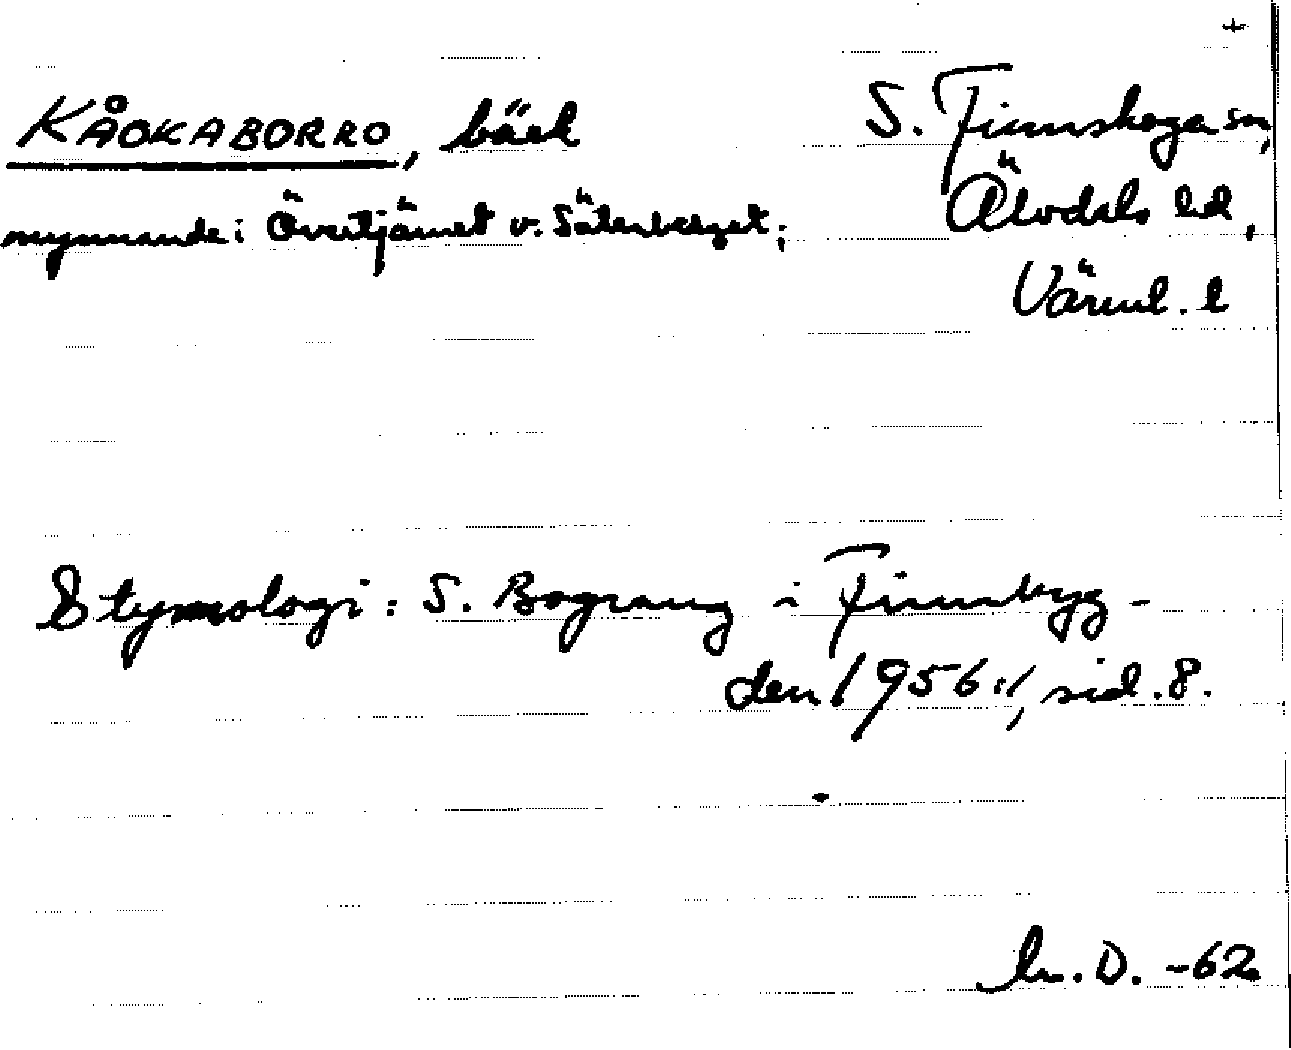 +
KÅOKABORRO, bäck
S. Finnskoga sn,
mynnande i Övertjärnet v. Säterberget;
Älvdals hd,
Värml. l
Etymologi: S. Bograng i Finnbyg-
den 1956:1, sid. 8.
D. -62